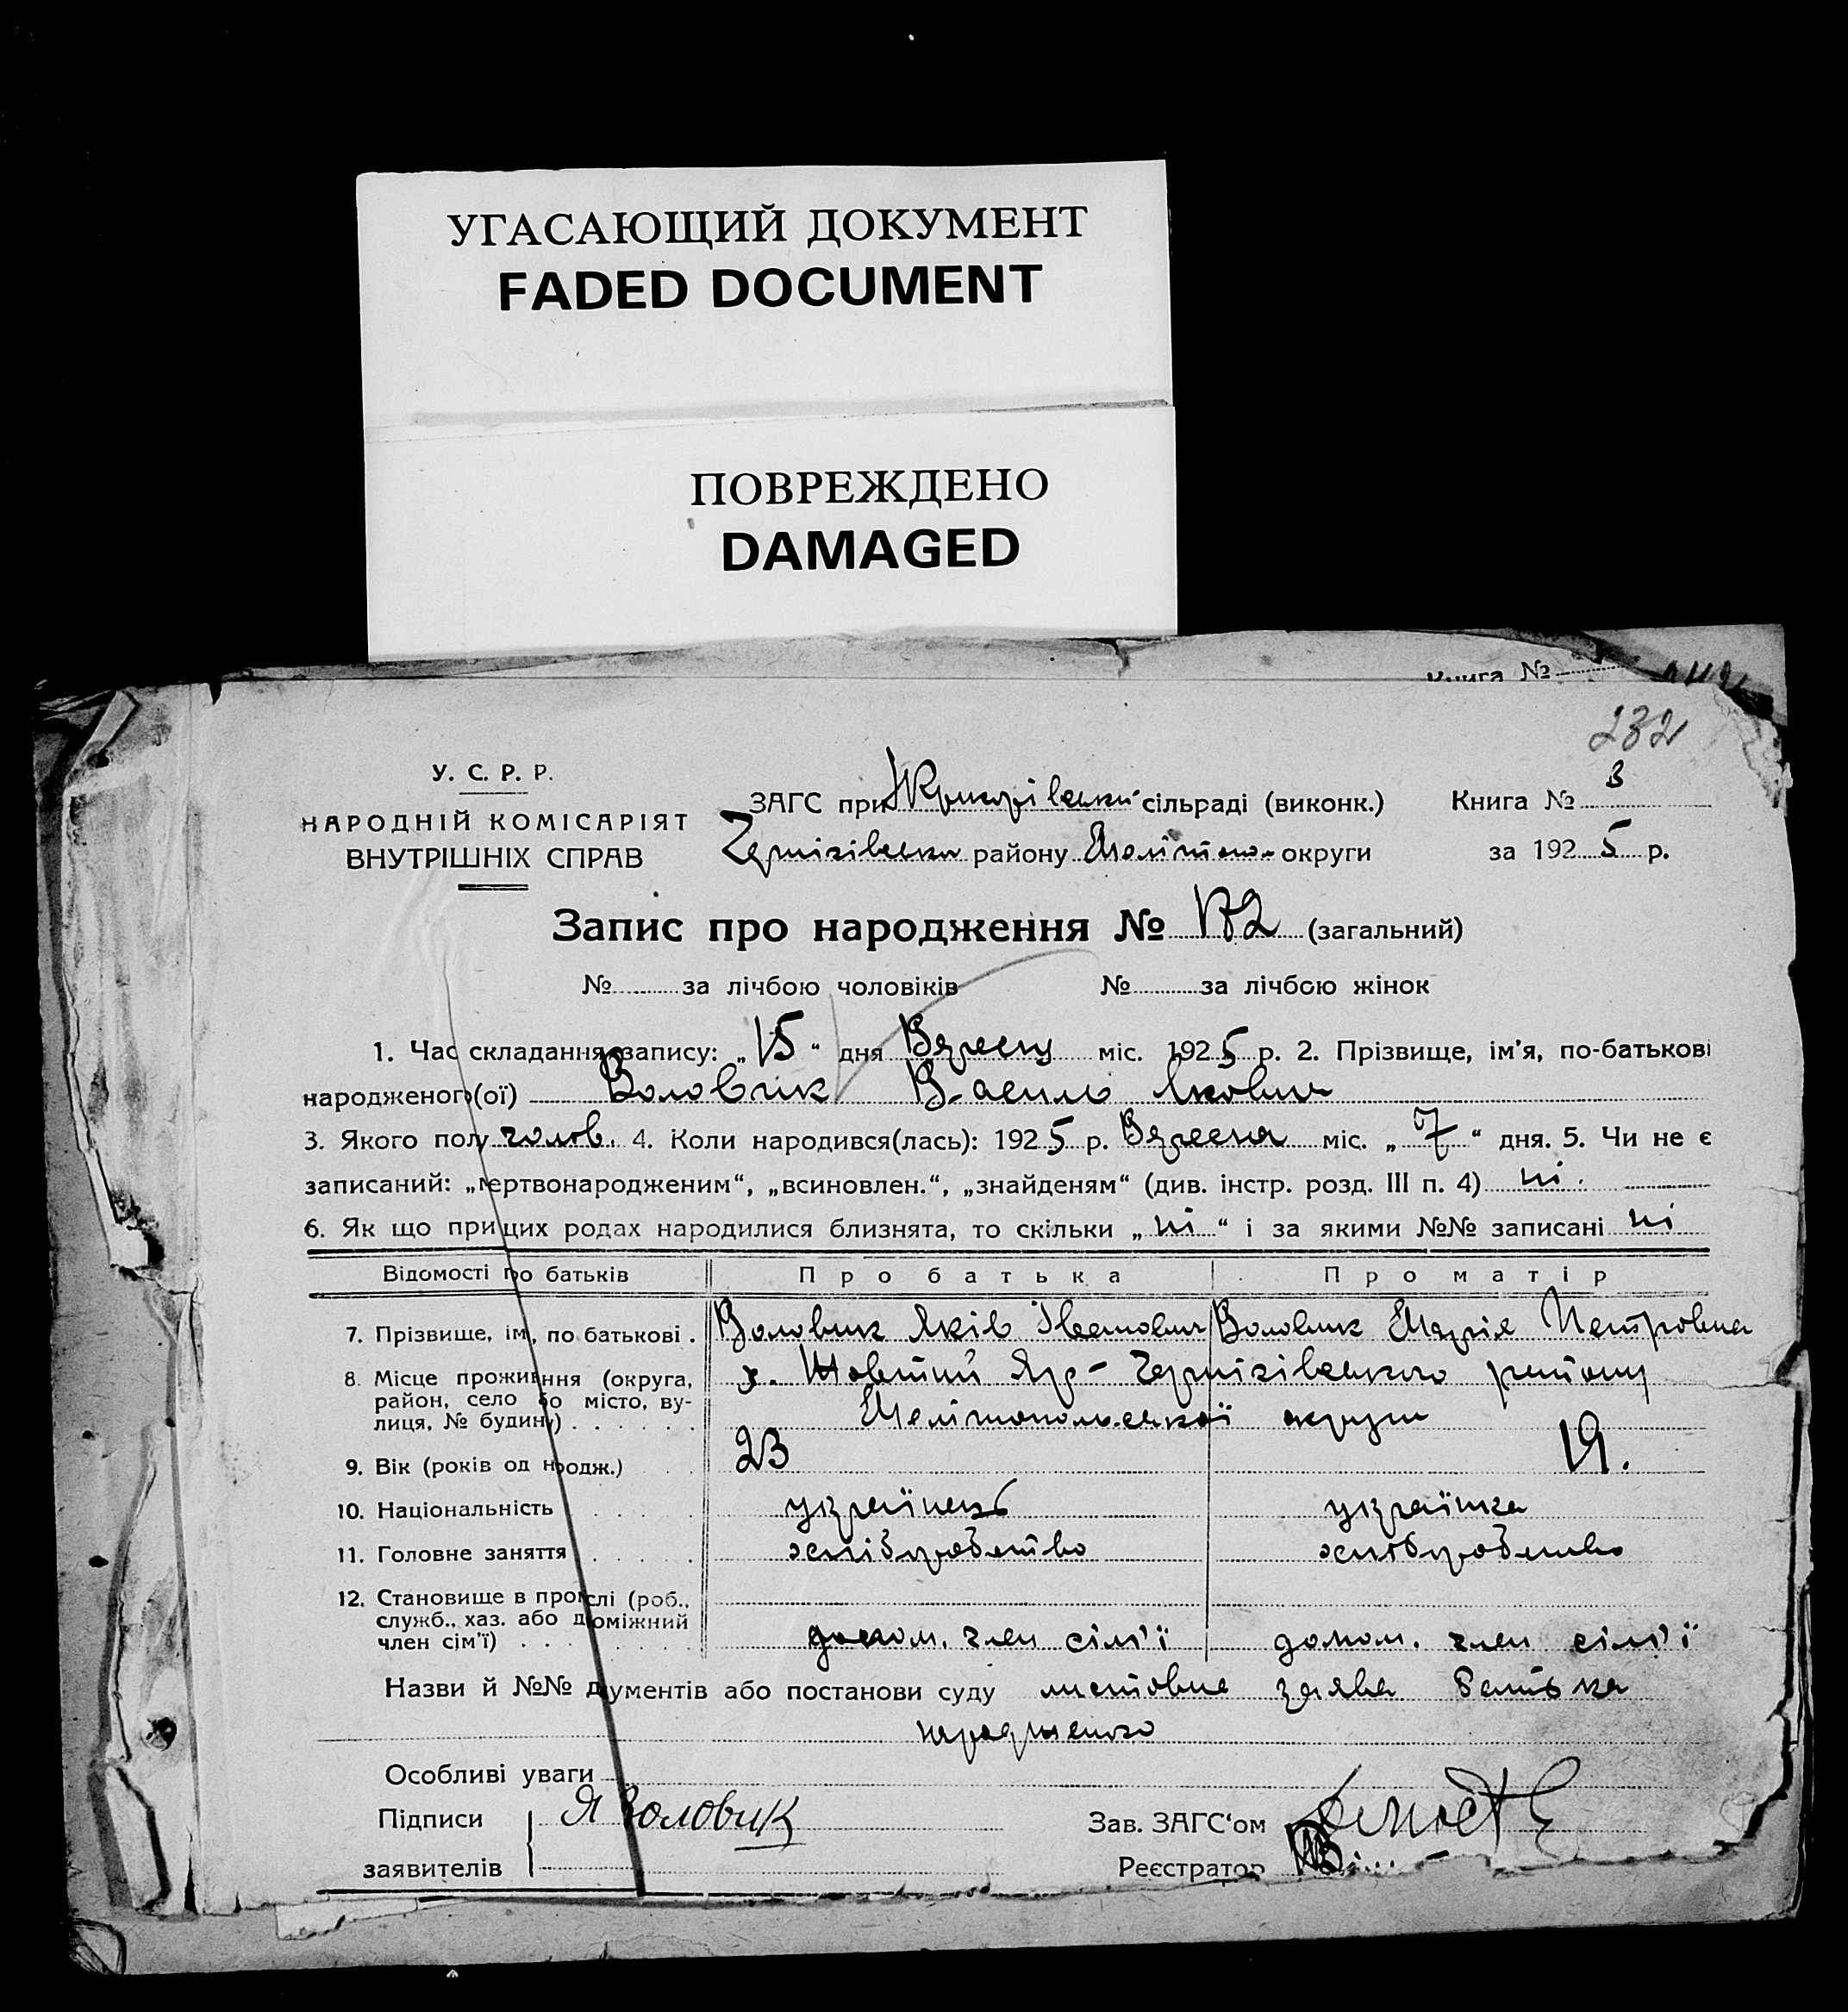 УГАСАЮЩИЙ ДОКУМЕНТ
FADED DOCUMENT
ПОВРЕЖДЕНО
DAMAGED
Книга №
232
У. С. Р. Р.
НАРОДНІЙ КОМІСАРІЯТ
ВНУТРІШНІХ СПРАВ
ЗАГС при сільраді (виконк.)
Книга № 3
Чернігівськ району Меліто округи
за 1925 р.
Запис про народження № (загальний)
№ за лічбою чоловіків № за лічбою жінок
1. Час складання запису: „15“ дня Вересн міс. 1925 р. 2. Прізвище, ім'я, по-батькові
народженого(ої) Воловик Василь Якович
3. Якого полу чолов. 4. Коли народився(лась): 1925 р. Вересня міс. „7“ дня. 5. Чи не є
записаний: „мертвонародженим“, „всиновлен.“, „знайденям“ (див. інстр. розд. III п. 4) ні.
6. Як що при цих родах народилися близнята, то скільки „ні“ і за якими №№ записані ні
Відомості про батьків Про батька Про матір
7. Прізвище, ім, по батькові . Воловик Яків Іванович Воловик Марія Петровна
8. Місце проживання (округа, район, село або місто, вулиця, № будин.) х. Жовтий Яр - Чернігівського району
Мелітопольської округи
9. Вік (років од нродж.) 23 19.
10. Національність українець українка
11. Головне заняття хліборобство хліборобство
12. Становище в промислі (роб., служб., хаз. або допоміжний член сім'ї) допом. член сім'ї допом. член сім'ї
Назви й №№ документів або постанови суду заява батька
народженого
Особливі уваги
Підписи Я Воловик
заявителів
Зав. ЗАГС'ом
Реєстратор